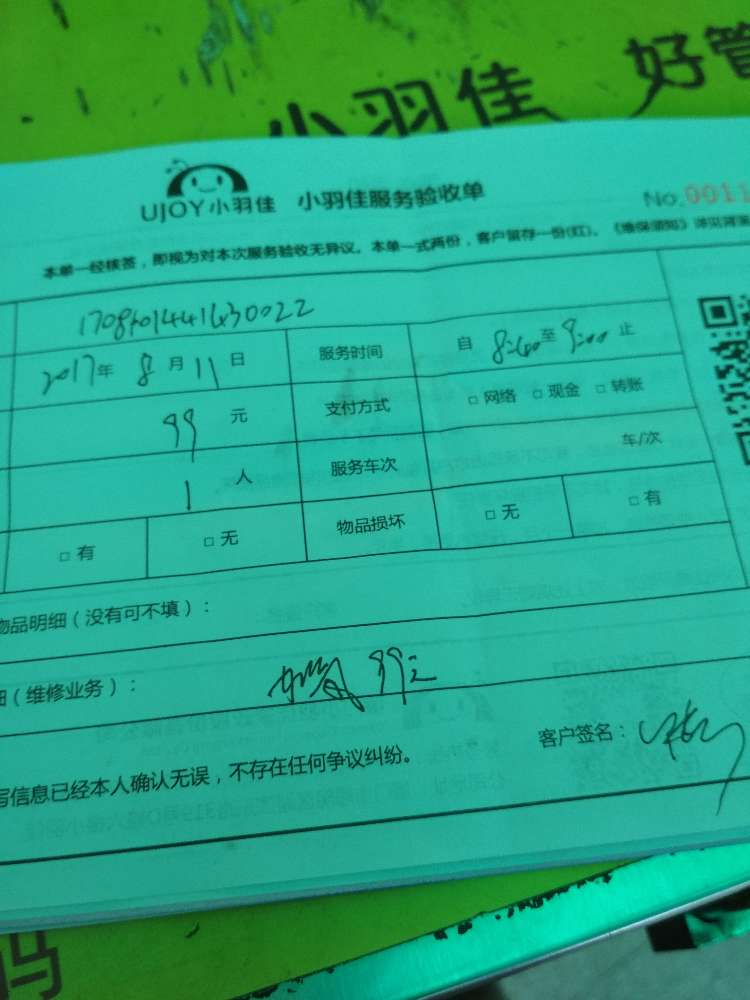 小羽佳 好管
UJOY小羽佳 小羽佳服务验收单 No.0011
本单一经核签，即视为对本次服务验收无异议。本单一式两份，客户留存一份(红)。《维保须知》详见背
2017年 8月11日 服务时间 自 8:40至9:00止
99元 支付方式 □网络 □现金 □转账
1人 服务车次 车/次
□有 □无 物品损坏 □无 □有
物品明细（没有可不填）：
（维修业务）： 99元
写信息已经本人确认无误，不存在任何争议纠纷。 客户签名：
码